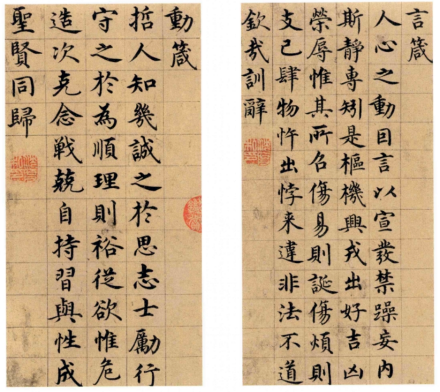 言箴
人心之動因言以宣發禁躁妄內
斯静專矧是樞機興戎出好吉凶
榮辱惟其所召傷易則誕傷煩則
支己肆物忤出悖来違非法不道
欽哉訓辭
動箴
哲人知幾誠之於思志士勵行
守之於為順理則裕從欲惟危
造次克念戰兢自持習與性成
聖賢同歸